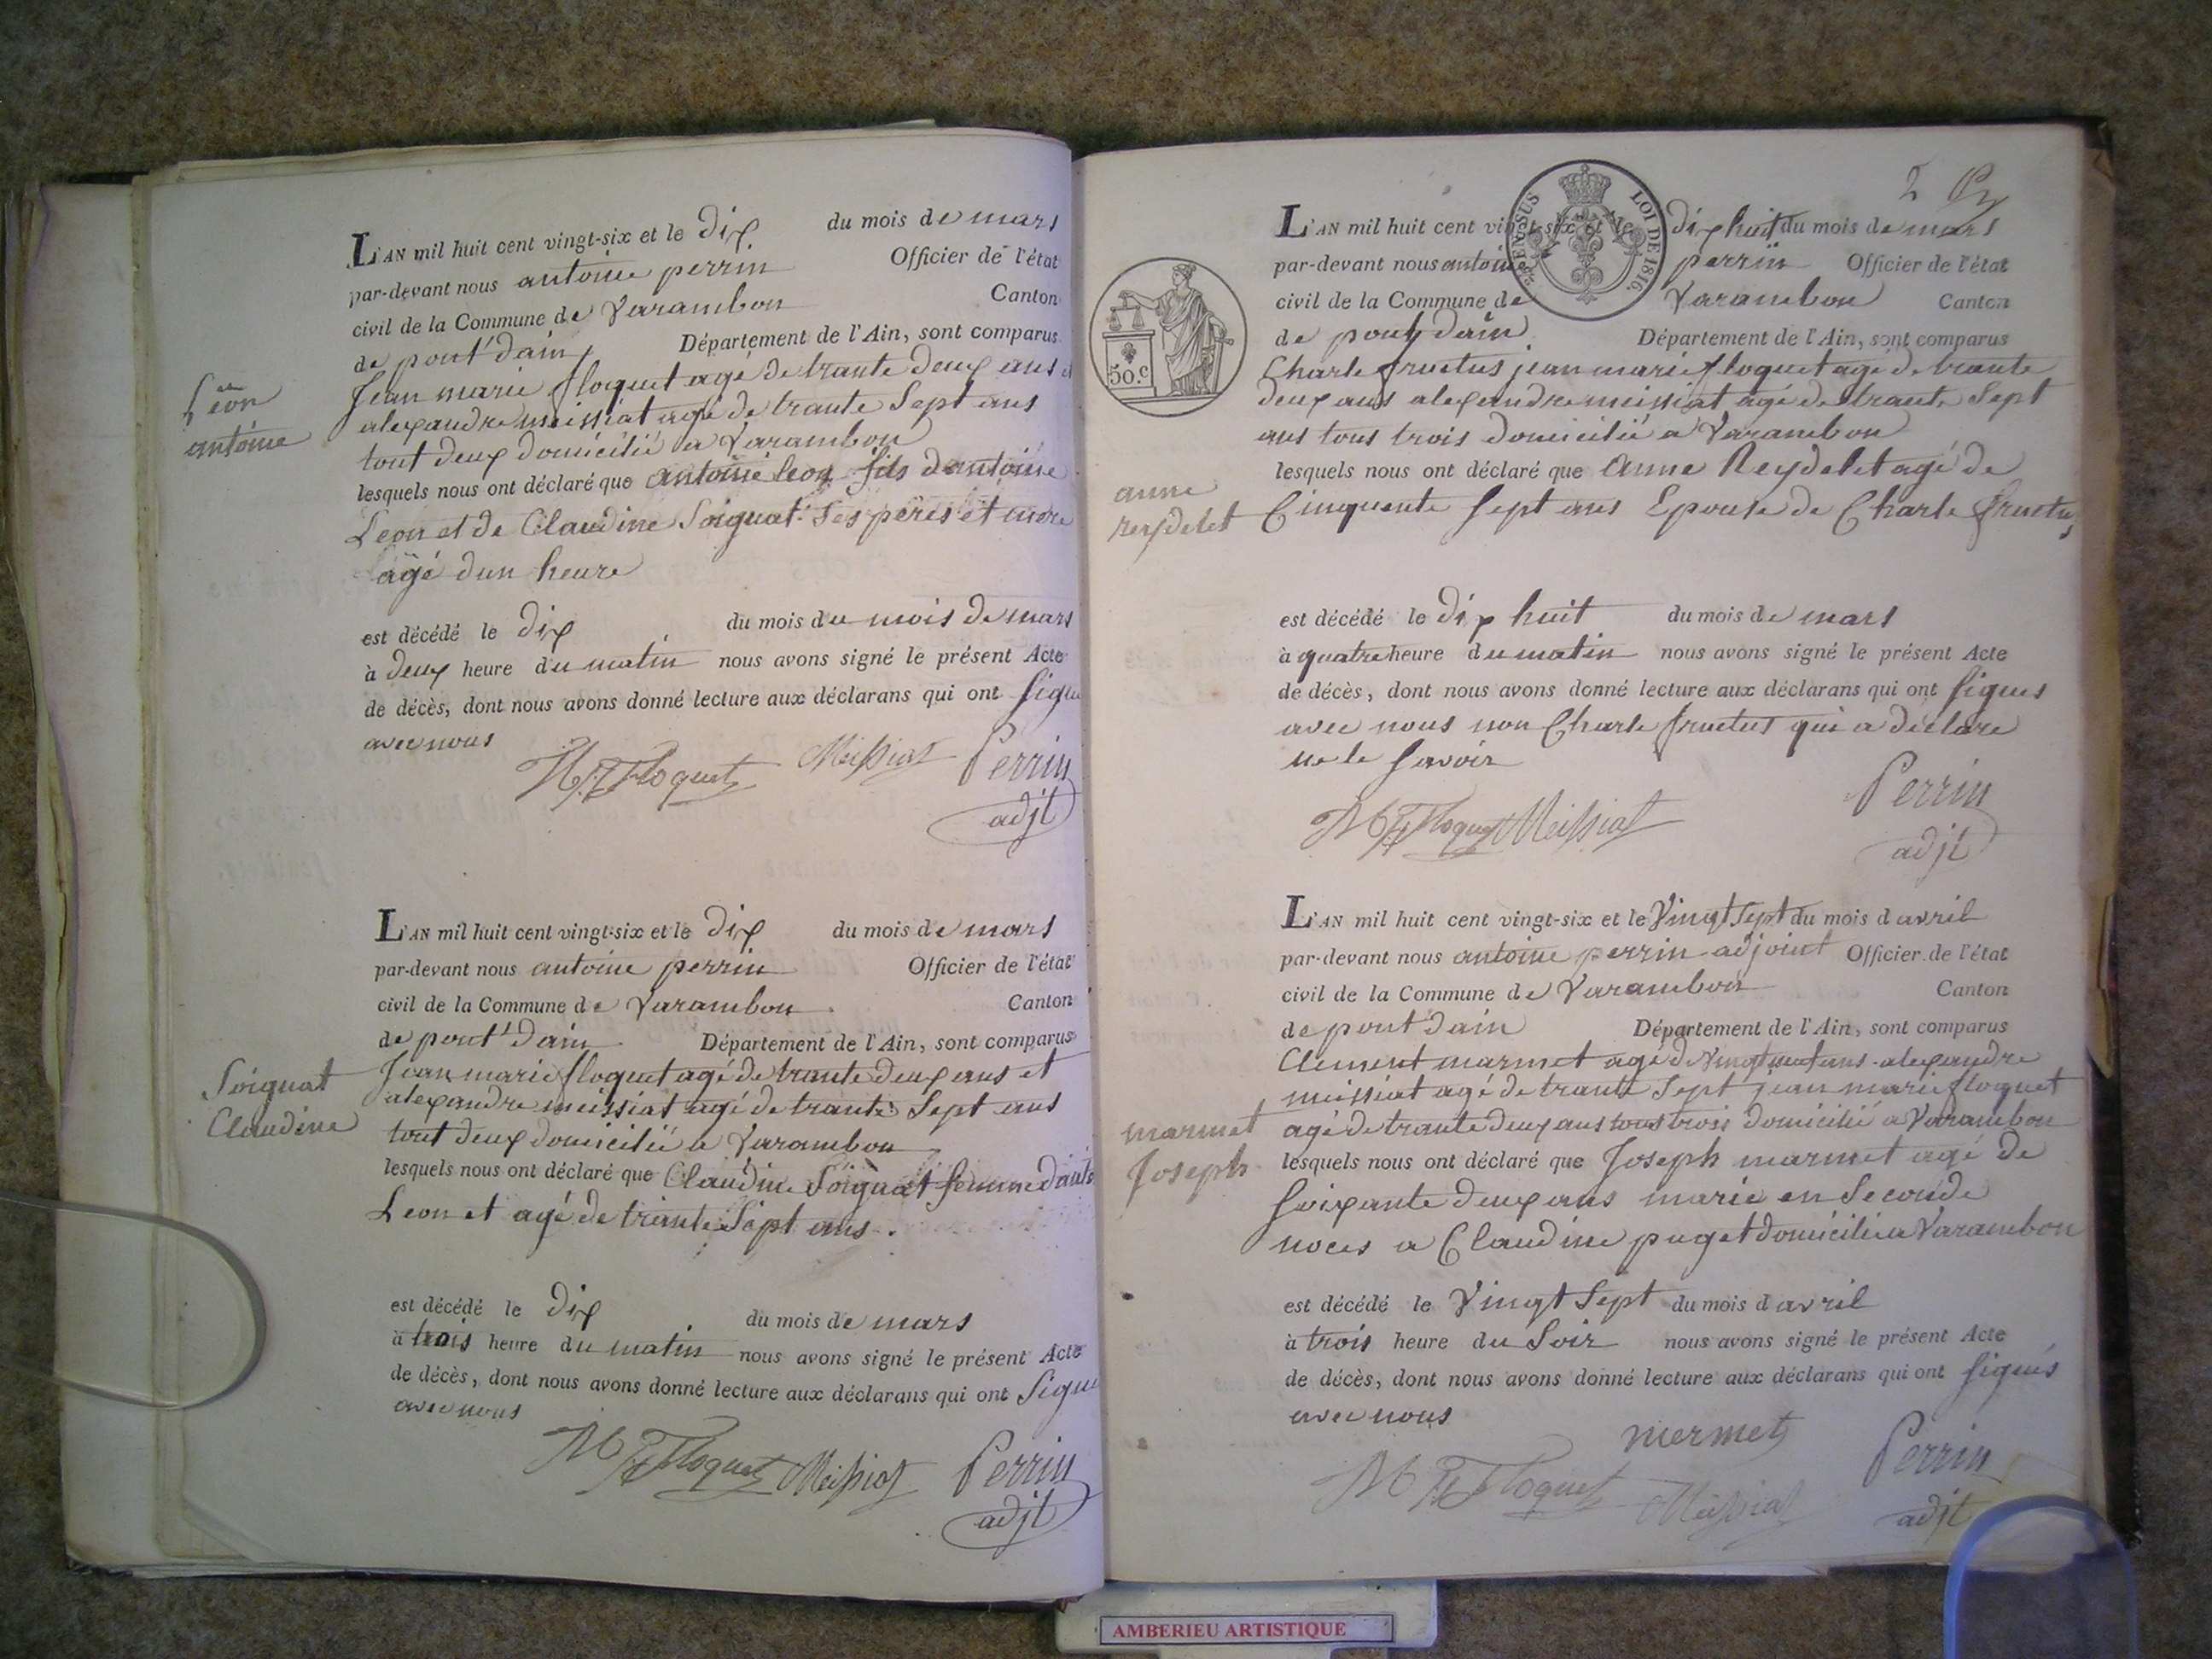 L'AN mil huit cent vingt-six et le dix du mois de mars
par-devant nous antoine perrin Officier de l'état
civil de la Commune de Varambon Canton
de pont d'ain Département de l'Ain, sont comparus
Jean marie floquet agé de trante deux ans et
alexandre meissiat agé de trante Sept ans
tout deux domicilié a Varambon
Léon
antoine
lesquels nous ont déclaré que antoine leon fils dantoine
Leon et de Claudine Soiguat Ses peres et mere
agé dun heure
est décédé le dix du mois du mois de mars
à deux heure du matin nous avons signé le présent Acte
de décès, dont nous avons donné lecture aux déclarans qui ont signé
avec nous
Floquet Meissiat Perrin
adjt
L'AN mil huit cent vingt-six et le dix du mois de mars
par-devant nous antoine perrin Officier de l'état
civil de la Commune de Varambon Canton
de pont d'ain Département de l'Ain, sont comparus
Jean marie floquet agé de trante deux ans et
alexandre meissiat agé de trante Sept ans
tout deux domicilié a Varambon
Soiguat
Claudine
lesquels nous ont déclaré que Claudine Soiguat femme
Leon et agé de trente Sept ans.
est décédé le dix du mois de mars
à trois heure du matin nous avons signé le présent Acte
de décès, dont nous avons donné lecture aux déclarans qui ont Signé
avec nous
Floquet Meissiat Perrin
adjt
2
LOI DE 1816
50.c
L'AN mil huit cent vingt-six et le dix huit du mois de mars
par-devant nous antoine perrin Officier de l'état
civil de la Commune de Varambon Canton
de pont dain Département de l'Ain, sont comparus
Charle fructus jean marie floquet agé de trante
deux ans alexandre meissiat agé de trante Sept
ans tous trois domicilié a Varambon
anne
reydelet
lesquels nous ont déclaré que anne Reydelet agé de
Cinquente Sept ans Epouse de Charle fructus
est décédé le dix huit du mois de mars
à quatre heure du matin nous avons signé le présent Acte
de décès, dont nous avons donné lecture aux déclarans qui ont signés
avec nous non Charle fructus qui a déclare
ne le savoir
Floquet Meissiat Perrin
adjt
L'AN mil huit cent vingt-six et le Vingt Sept du mois d avril
par-devant nous antoine perrin adjoint Officier de l'état
civil de la Commune de Varambon Canton
de pont dain Département de l'Ain, sont comparus
Clement marmet agé de Vingt ans alexandre
meissiat agé de trante Sept jean marie floquet
agé de trante deux ans tous trois domicilié a Varambon
marmet
Joseph
lesquels nous ont déclaré que Joseph marmet agé de
Soixante deux ans marie en Seconde
noces a Claudine puget domicilié a Varambon
est décédé le Vingt Sept du mois d avril
à trois heure du Soir nous avons signé le présent Acte
de décès, dont nous avons donné lecture aux déclarans qui ont signés
avec nous
mermet
Floquet Meissiat Perrin
adjt
AMBERIEU ARTISTIQUE